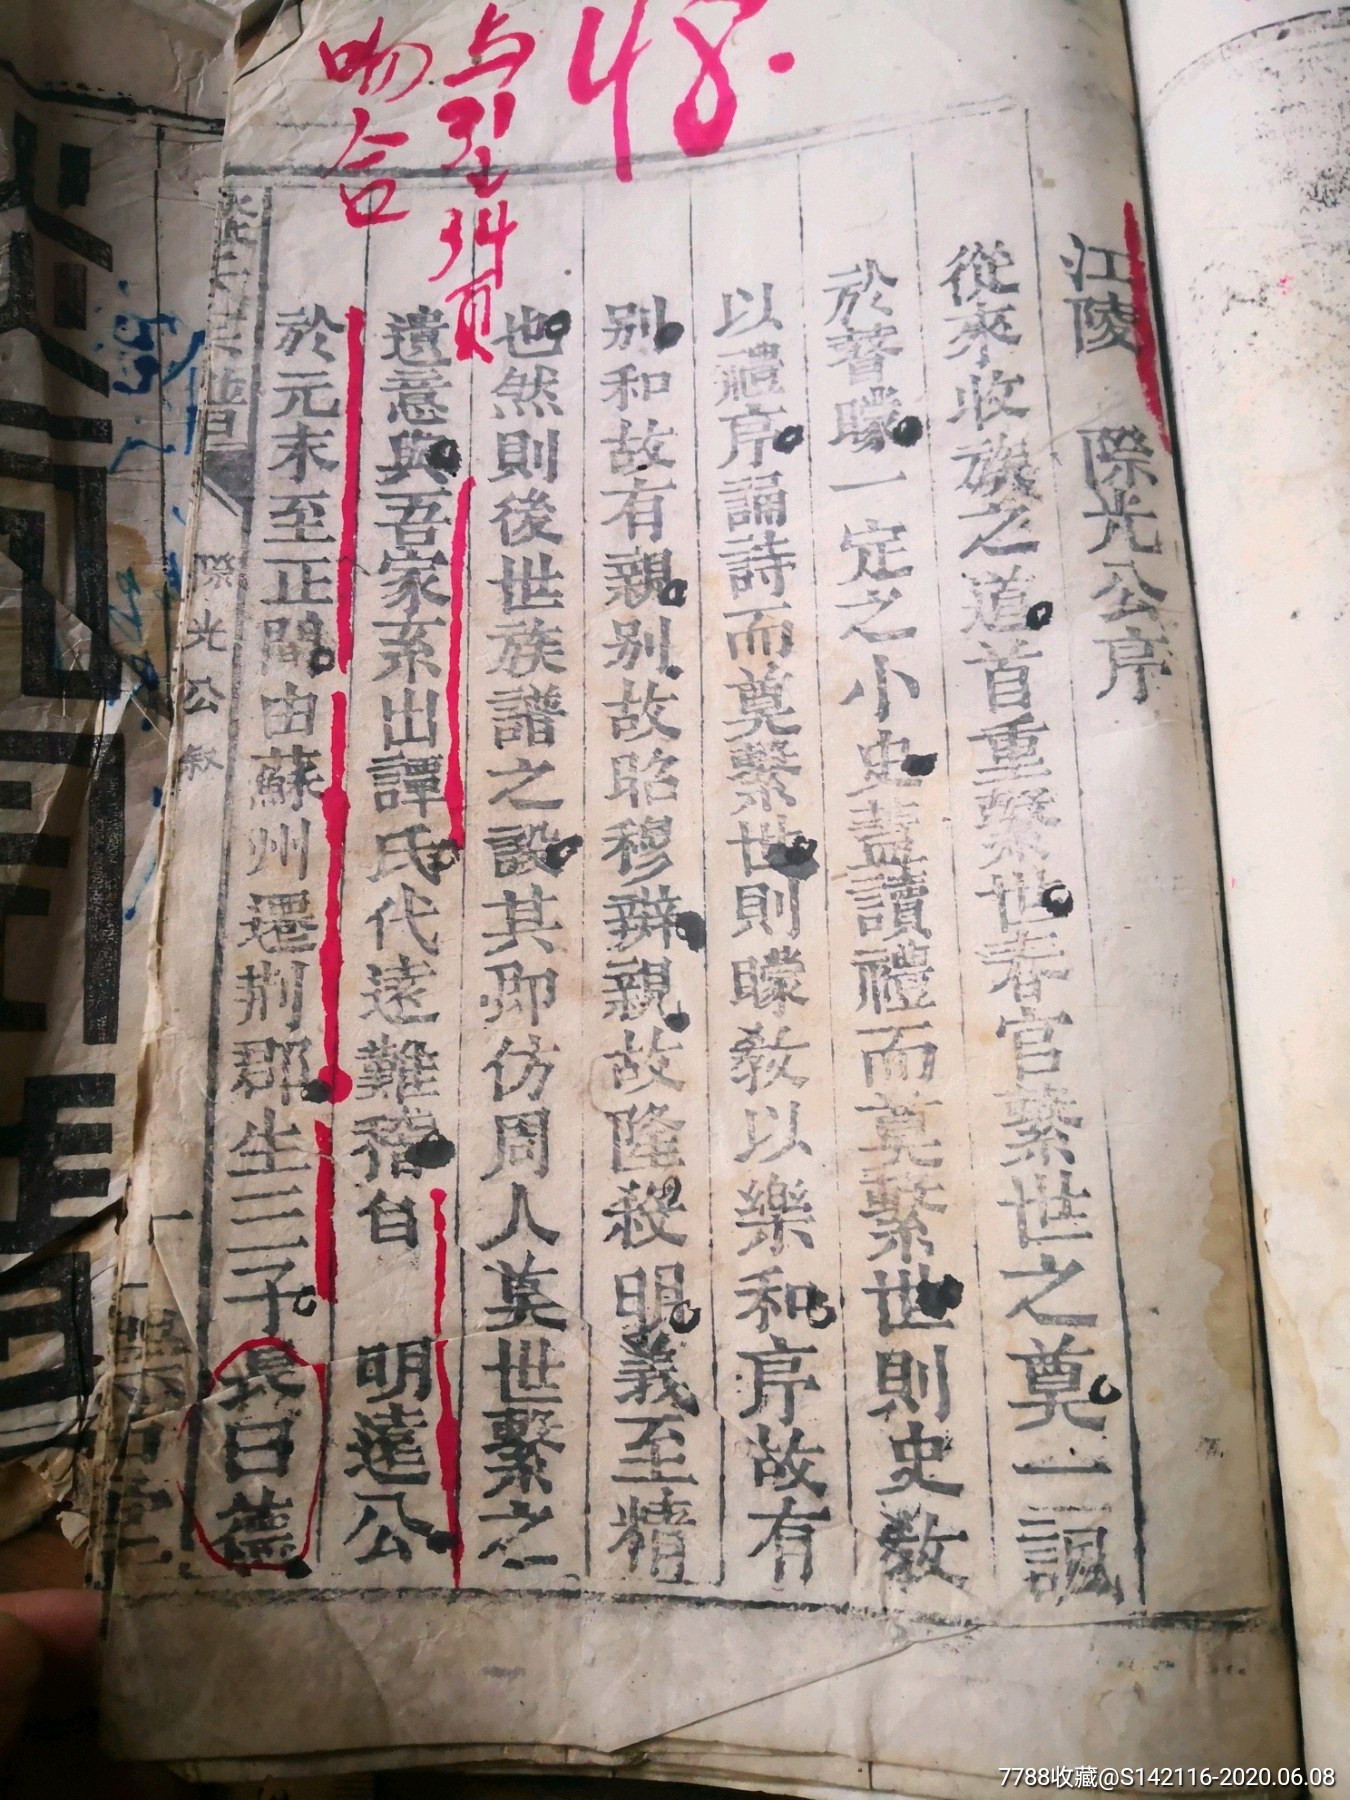 48.
与引34頁
吻合
江陵 際光公序
從來收族之道首重繫世春官繫世之奠一諷
於瞽矇一定之小史葢讀禮而莫繫世則史敎
以禮序誦詩而莫繫世則矇敎以樂和序故有
别和故有親别故昭穆辨親故隆殺明義至精
也然則後世族譜之設其卽仿周人奠世繫之
遺意與吾家系出譚氏代遠難稽自 明遠公
於元末至正間由蘇州遷荆郡生三子長曰德
際光公叙
一
7788收藏@S142116-2020.06.08